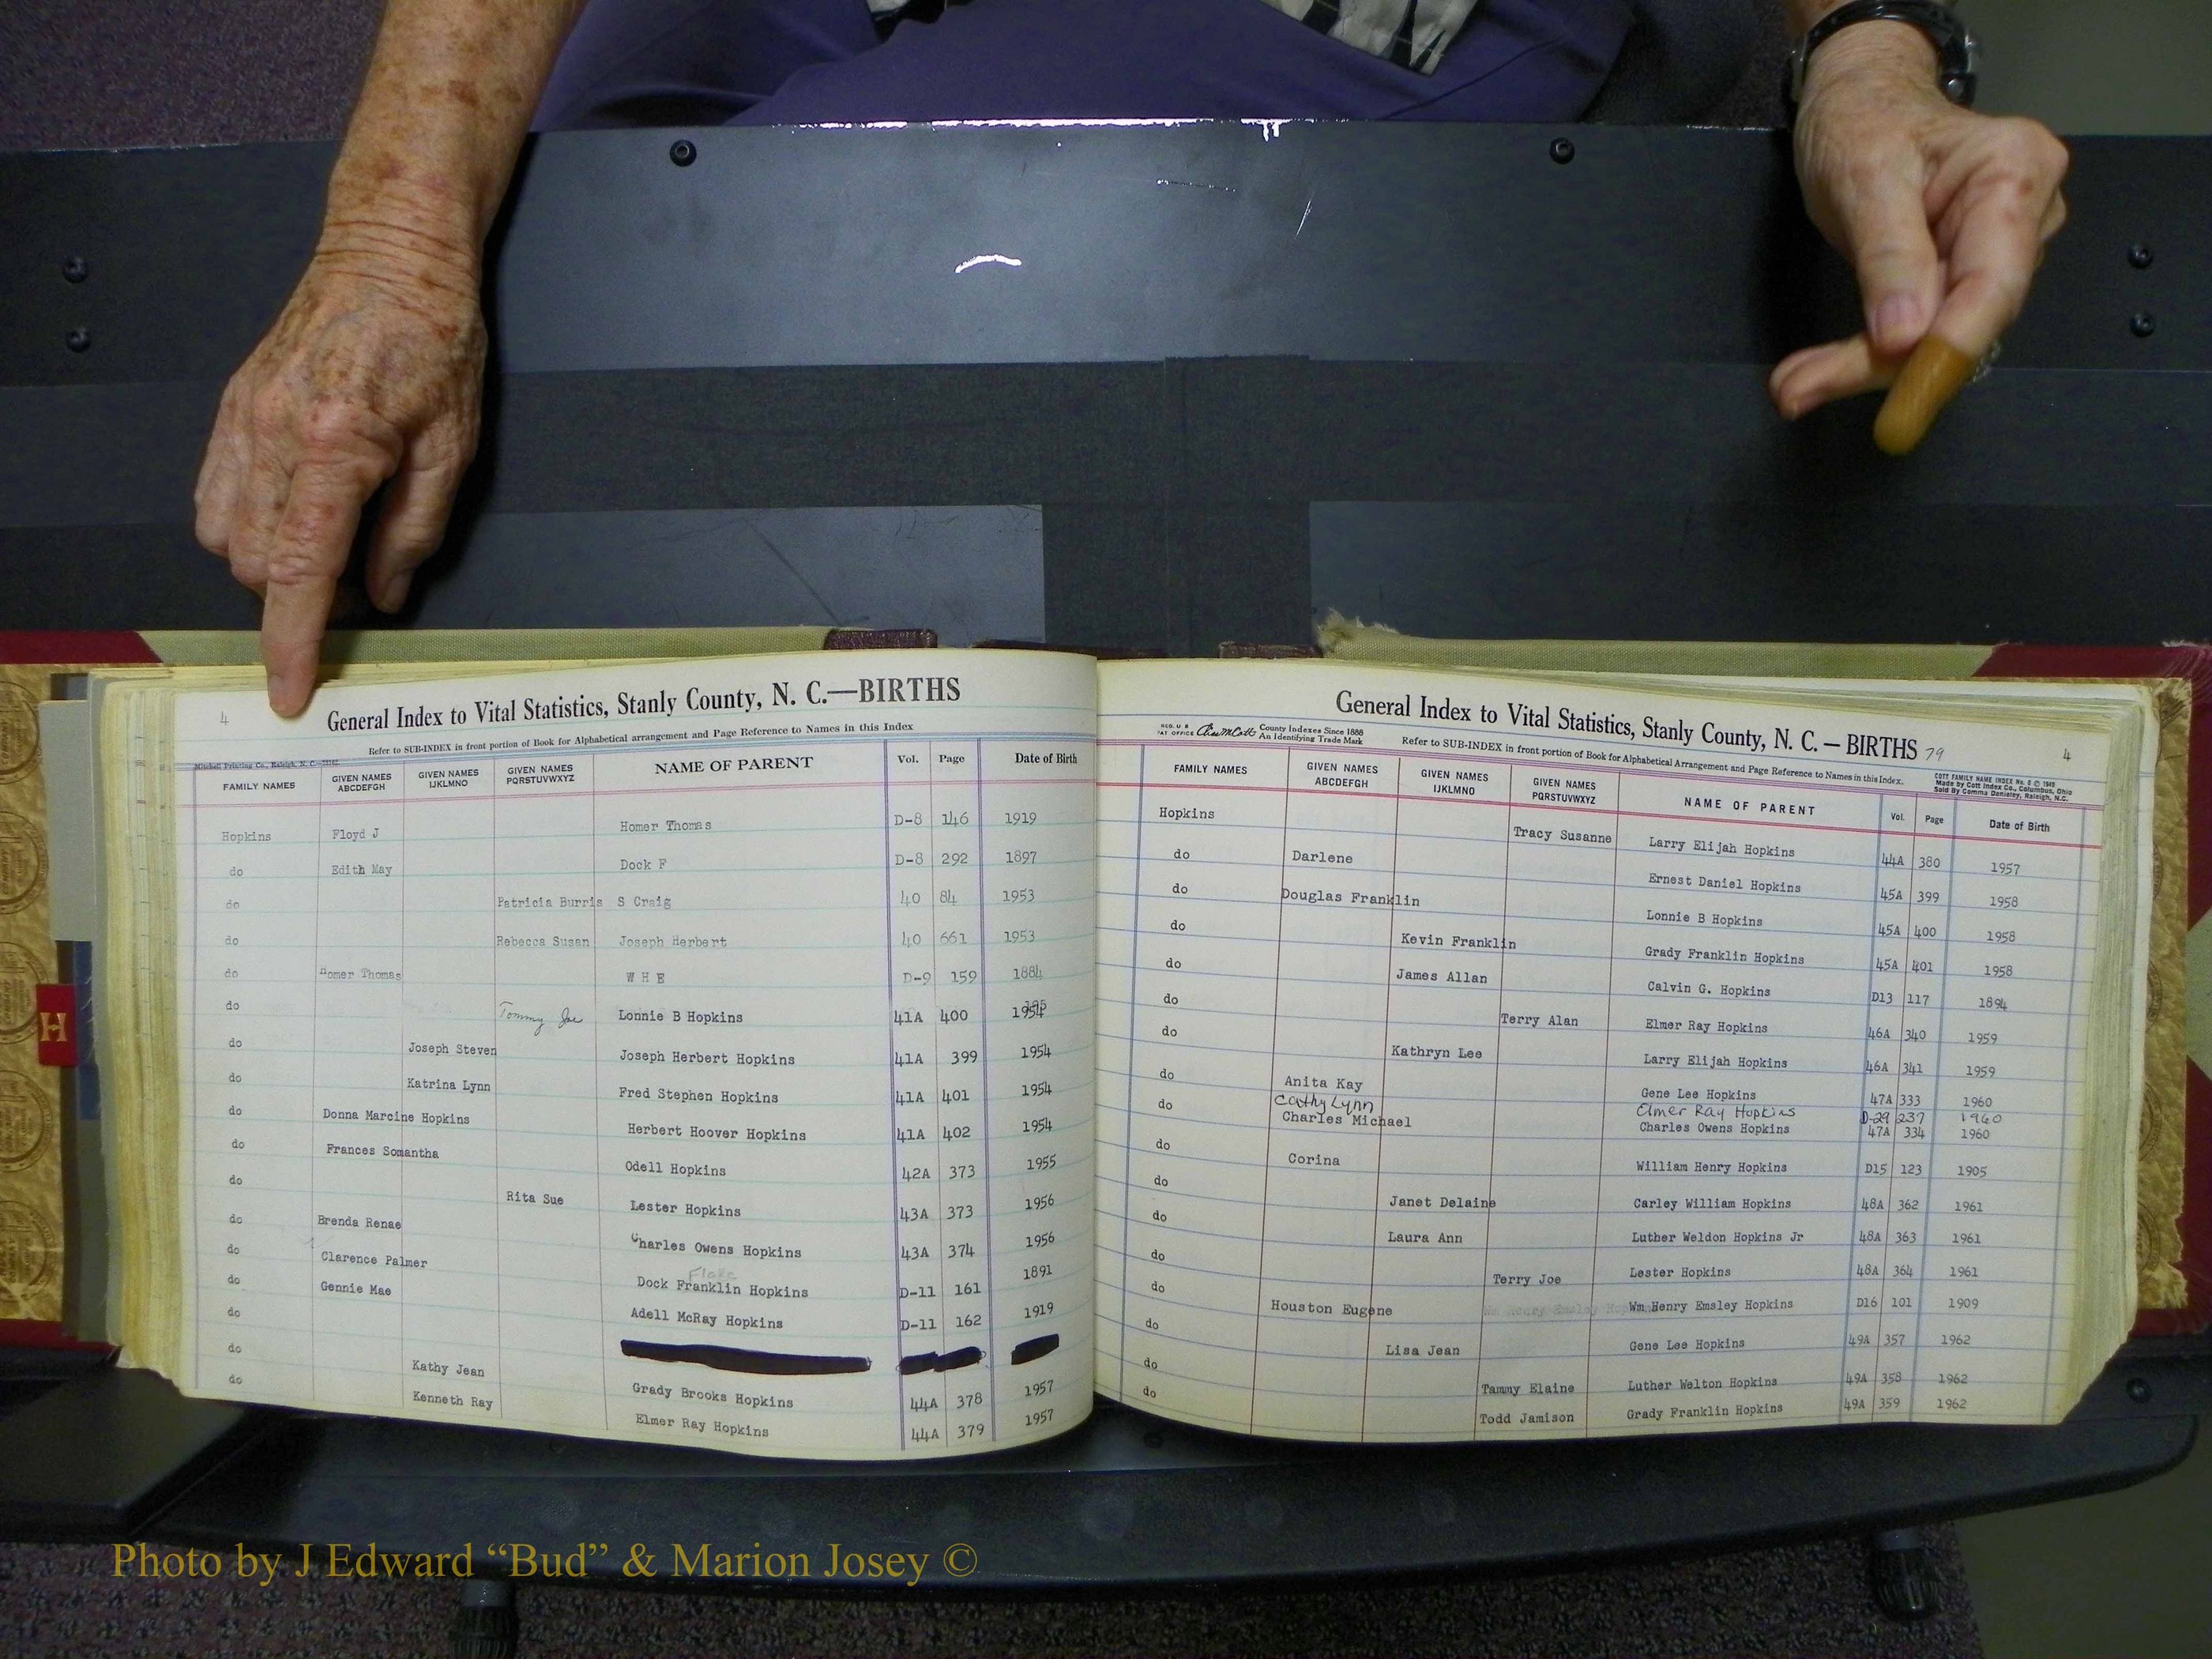 4
General Index to Vital Statistics, Stanly County, N. C.—BIRTHS
Refer to SUB-INDEX in front portion of Book for Alphabetical arrangement and Page Reference to Names in this Index
Mitchell Printing Co., Raleigh, N. C.
FAMILY NAMES GIVEN NAMES ABCDEFGH GIVEN NAMES IJKLMNO GIVEN NAMES PQRSTUVWXYZ NAME OF PARENT Vol. Page Date of Birth
Hopkins Floyd J Homer Thomas D-8 146 1919
do Edith May Dock F D-8 292 1897
do Patricia Burris S Craig 40 84 1953
do Rebecca Susan Joseph Herbert 40 661 1953
do Homer Thomas W H E D-9 159 1884
do Tommy Joe Lonnie B Hopkins 41A 400 1954
do Joseph Steven Joseph Herbert Hopkins 41A 399 1954
do Katrina Lynn Fred Stephen Hopkins 41A 401 1954
do Donna Marcine Hopkins Herbert Hoover Hopkins 41A 402 1954
do Frances Somantha Odell Hopkins 42A 373 1955
do Rita Sue Lester Hopkins 43A 373 1956
do Brenda Renae Charles Owens Hopkins 43A 374 1956
do Clarence Palmer Dock Franklin Hopkins D-11 161 1891
Flake
do Gennie Mae Adell McRay Hopkins D-11 162 1919
do
do Kathy Jean Grady Brooks Hopkins 44A 378 1957
do Kenneth Ray Elmer Ray Hopkins 44A 379 1957
H
General Index to Vital Statistics, Stanly County, N. C. — BIRTHS 79
4
REG. U S PAT OFFICE County Indexes Since 1888 An Identifying Trade Mark
Refer to SUB-INDEX in front portion of Book for Alphabetical Arrangement and Page Reference to Names in this Index.
COTT FAMILY NAME INDEX No. 8 © 1949
Made by Cott Index Co., Columbus, Ohio
Sold By Comma Danieley, Raleigh, N.C.
FAMILY NAMES GIVEN NAMES ABCDEFGH GIVEN NAMES IJKLMNO GIVEN NAMES PQRSTUVWXYZ NAME OF PARENT Vol. Page Date of Birth
Hopkins Tracy Susanne Larry Elijah Hopkins 44A 380 1957
do Darlene Ernest Daniel Hopkins 45A 399 1958
do Douglas Franklin Lonnie B Hopkins 45A 400 1958
do Kevin Franklin Grady Franklin Hopkins 45A 401 1958
do James Allan Calvin G. Hopkins D13 117 1894
do Terry Alan Elmer Ray Hopkins 46A 340 1959
do Kathryn Lee Larry Elijah Hopkins 46A 341 1959
do Anita Kay Gene Lee Hopkins 47A 333 1960
Cathy Lynn Elmer Ray Hopkins D-29 237 1960
do Charles Michael Charles Owens Hopkins 47A 334 1960
do Corina William Henry Hopkins D15 123 1905
do Janet Delaine Carley William Hopkins 48A 362 1961
do Laura Ann Luther Weldon Hopkins Jr 48A 363 1961
do Terry Joe Lester Hopkins 48A 364 1961
do Houston Eugene Wm Henry Emsley Hopkins D16 101 1909
do Lisa Jean Gene Lee Hopkins 49A 357 1962
do Tammy Elaine Luther Welton Hopkins 49A 358 1962
do Todd Jamison Grady Franklin Hopkins 49A 359 1962
Photo by J Edward “Bud” & Marion Josey ©